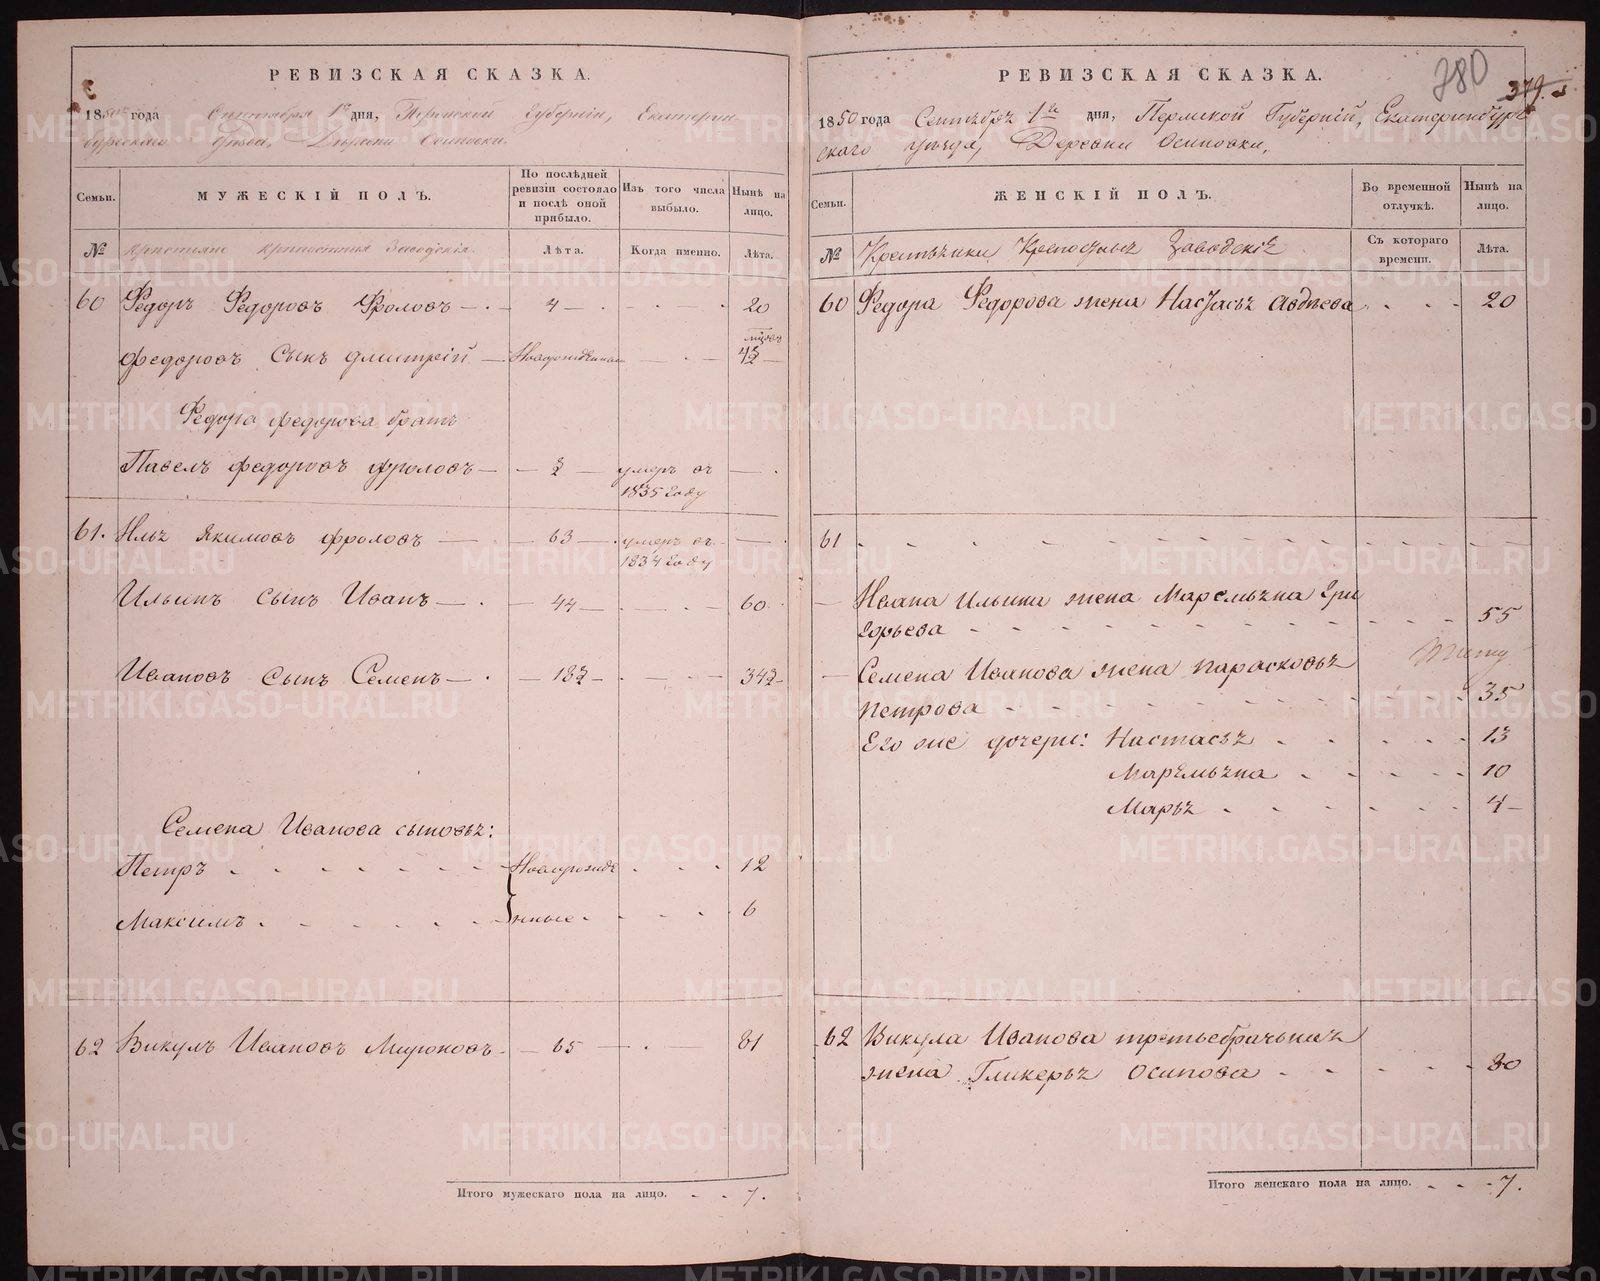 РЕВИЗСКАЯ СКАЗКА.
1850 года Сентября 1го дня, Пермской Губернии, Екатерин-
бургскаго Уѣзда, Деревни Осиповки.
Семьи.
МУЖЕСКІЙ ПОЛЪ.
По послѣдней ревизіи состояло и послѣ оной прибыло.
Изъ того числа выбыло.
Нынѣ на лицо.
№
Крестьяне крепостныя Заводскія.
Лѣта.
Когда именно.
Лѣта.
60 Ѳедоръ Ѳедоровъ Фроловъ 4 20
Федоровъ Сынъ Дмитрій Новорожденный
Ѳедора Федорова братъ
Павелъ Федоровъ Фроловъ умеръ въ
1835 году
61. Илья Якимовъ Фроловъ 63 умеръ въ
1834 году
Ильинъ сынъ Иванъ 44 60
Ивановъ сынъ Семенъ 18½ 34½
Семена Иванова сыновья:
Петръ Новорожде 12
Максимъ нные 6
62 Викулъ Ивановъ Мироновъ 65 81
Итого мужескаго пола на лицо. 7.
РЕВИЗСКАЯ СКАЗКА.
780
379.
1850 года Сентября 1го дня, Пермской Губерній, Екатеринбург
скаго уѣзда, Деревни Осиповки.
Семьи.
ЖЕНСКІЙ ПОЛЪ.
Во временной отлучкѣ.
Нынѣ на лицо.
№
Крестьянки Крепосныя Заводскія
Съ котораго времени.
Лѣта.
60 Ѳедора Ѳедорова жена Настасья Авдѣева 20
61
Ивана Ильина жена Маремьяна Гри
горьева 55
Семена Иванова жена Парасковья
Петрова 35
Его же дочери: Настасья 13
Маремьяна 10
Марья 4
62 Викула Иванова третьебрачьная
жена Гликерья Осипова 80
Итого женскаго пола на лицо. 7.
METRIKI.GASO-URAL.RU